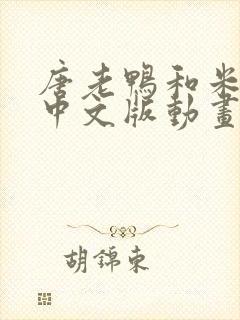 唐老鴨和米
中文版動畫
胡錦東